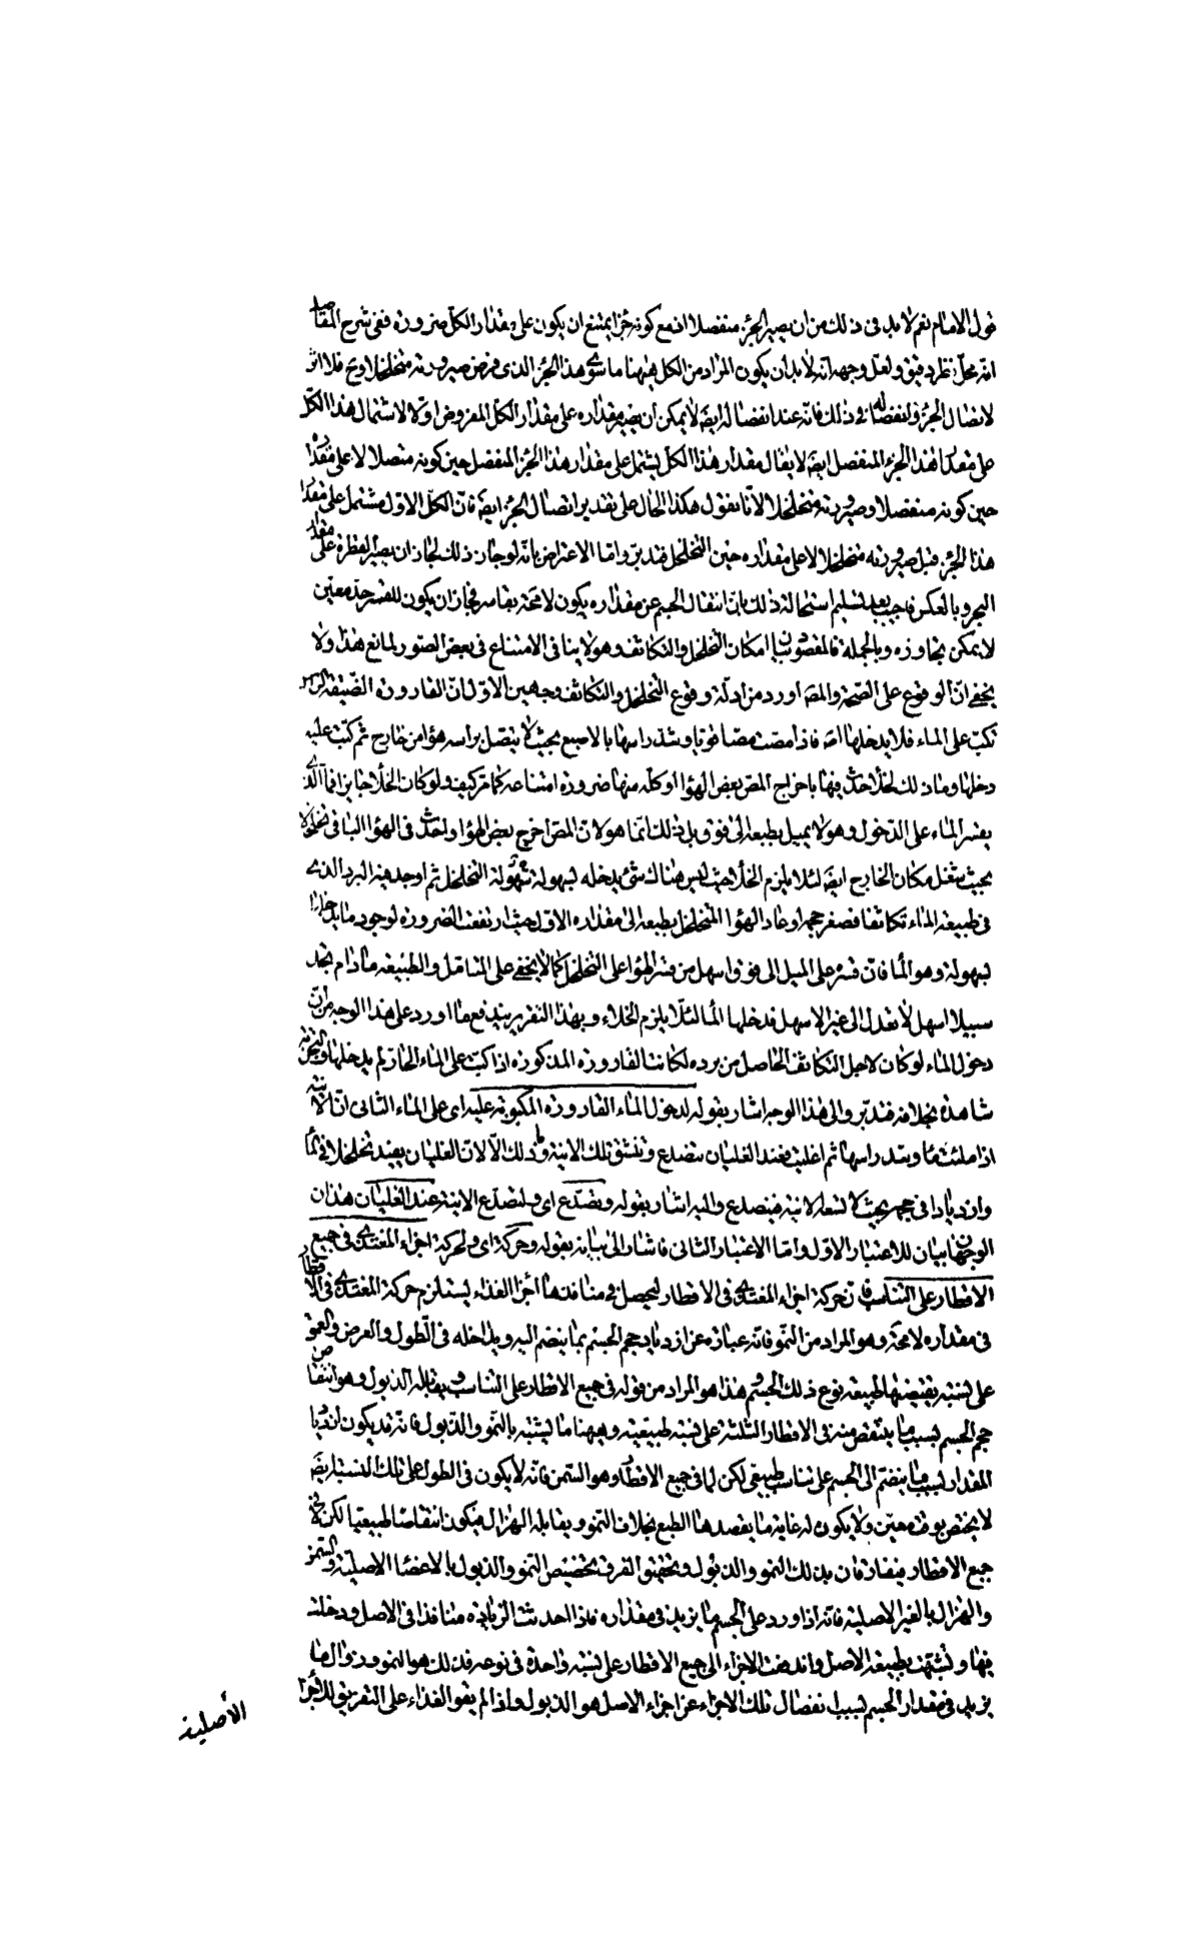 قول الامام نعم لا بد فى ذلك من ان يصير الجزء منفصلا اذ مع كونه جزأ يمتنع ان يكون على مقدار الكل ضرورة ففى شرح المقاصد
انه محل نظر دقيق ولعل وجهه انه لا بد ان يكون المراد من الكل ههنا ما سوى هذا الجزء الذى فرض صيرورته متخلخلا وح فلا اثر
لاتصال الجزء وانفصاله فى ذلك فانه عند انفصاله ايضا لا يمكن ان يصير مقداره على مقدار الكل المفروض اولا لاشتمال هذا الكل
على مقدار هذا الجزء المنفصل ايضا لا يقال مقدار هذا الكل يشتمل على مقدار هذا الجزء المنفصل حين كونه متصلا لا على مقداره
حين كونه منفصلا وصيرورته متخلخلا لانا نقول هكذا الحال على تقدير اتصال الجزء ايضا فان الكل الاول مشتمل على مقدار
هذا الجزء قبل صيرورته متخلخلا لا على مقداره حين التخلخل فتدبر واما الاعتراض بانه لو جاز ذلك لجاز ان يصير القطرة على مقدار
البحر وبالعكس فاجيب بعد تسليم استحالة ذلك بان انتقال الجسم عن مقداره يكون لا محة بقاسر فجاز ان يكون للقسر حد معين
لا يمكن تجاوزه وبالجملة فالمقصود بيان امكان التخلخل والتكاثف وهو لا ينافى الامتناع فى بعض الصور لمانع هذا ولا
يخفى ان الوقوع على الصحة والمصه اورد من ادلة وقوع التخلخل والتكاثف وجهين الاول ان القارورة الضيقة الراس
تكب على الماء فلا يدخلها اصه فاذا مصت مصا قويا وشد راسها بالاصبع بحيث لا يتصل براسه هواء من خارج ثم كبت عليه
دخلها وما ذلك لخلأ حدث فيها باخراج المص بعض الهواء او كله منها ضرورة امتناعه كما مر كيف ولو كان الخلأ جايزا فما الذى
يقسر الماء على الدخول وهو لا يميل بطبعه الى فوق بل ذلك انما هو لان المص اخرج بعض الهواء واحدث فى الهواء الباقى تخلخلا
بحيث شغل مكان الخارج ايضا لئلا يلزم الخلأ حيث ليس هناك شئ يدخله لسهولة سهولة التخلخل ثم اوجد فيه البرد الذى
فى طبيعة الماء تكاثفا فصغر حجمه او عاد الهواء المتخلخل بطبعه الى مقداره الاول حيث ارتفعت الضرورة لوجود ما يدخلها
لسهولة وهو الماء فان قسره على الميل الى فوق اسهل من قسر الهواء على التخلخل كما لا يخفى على المتامل والطبيعة ما دام تجد
سبيلا اسهل لا تعدل الى غير الاسهل فدخلها الماء لئلا يلزم الخلاء وبهذا التقرير يندفع ما اورد على هذا الوجه من ان
دخول الماء لو كان لاجل التكاثف الحاصل من برده لكانت القارورة المذكورة اذا كبت على الماء الحار لم يدخلها والتجربة
شاهدة بخلافه فتدبر والى هذا الوجه اشار بقوله لدخول الماء القارورة المكبوبة عليه اى على الماء الثانى ان الانية
اذا ملئت ماء وشد راسها ثم اغليت فعند الغليان تتصدع وتنشق تلك الانية وما ذلك الا لان الغليان يفيد تخلخلا فى الماء
وازديادا فى حجمه بحيث لا تسعه الانية فيتصدع واليه اشار بقوله وتصدع اى ولتصدع الانية عند الغليان هذان
الوجهان بيان للاعتبار الاول واما الاعتبار الثانى فاشار الى بيانه بقوله وحركة اى ولحركة اجزاء المغتذى فى جميع
الاقطار على التناسب فان حركة اجزاء المغتذى فى الاقطار ليحصل فى منافذها أجزاء الغذاء يستلزم حركة المغتذى فى الاقطار
فى مقداره لا محة وهو المراد من النمو فانه عبارة عن ازدياد حجم الجسم بما ينضم اليه ويداخله فى الطول والعرض والعمق
على نسبة يقتضيها طبيعة نوع ذلك الجسم وهذا هو المراد من قوله فى جميع الاقطار على التناسب ويقابله الذبول وهو انتقاص
حجم الجسم بسبب ما ينتقص منه فى الاقطار الثلثة على نسبة طبيعية وههنا ما يشتبه بالنمو والذبول فانه قد يكون ازدياد
المقدار بسبب ما ينضم الى الجسم على تناسب طبيعى لكن لا فى جميع الاقطار وهو السمن فانه لا يكون فى الطول على تلك النسبة وايضا
لا يختص بوقت معين ولا يكون له غاية ما يقصدها الطبع بخلاف النمو ويقابله الهزال فيكون انتقاصا طبيعيا لكن لا فى
جميع الاقطار فيفارقان بذلك النمو والذبول وتحقيق الفرق تخصيص النمو والذبول بالاعضاء الاصلية والسمن
والهزال بالغير الاصلية فانه اذا ورد على الجسم ما يزيد فى مقداره فاذا احدثت الزيادة منافذا فى الاصل ودخلت
فيها وتشبهت بطبيعة الاصل واندفعت الاجزاء الى جميع الاقطار على نسبة واحدة فى نوعه فذلك هو النمو وزوال ما
يزيد فى مقدار الجسم بسبب انفصال تلك الاجزاء عن اجزاء الاصل هو الذبول واذا لم يقو الغذاء على التفريق للاجزاء
الأصلية